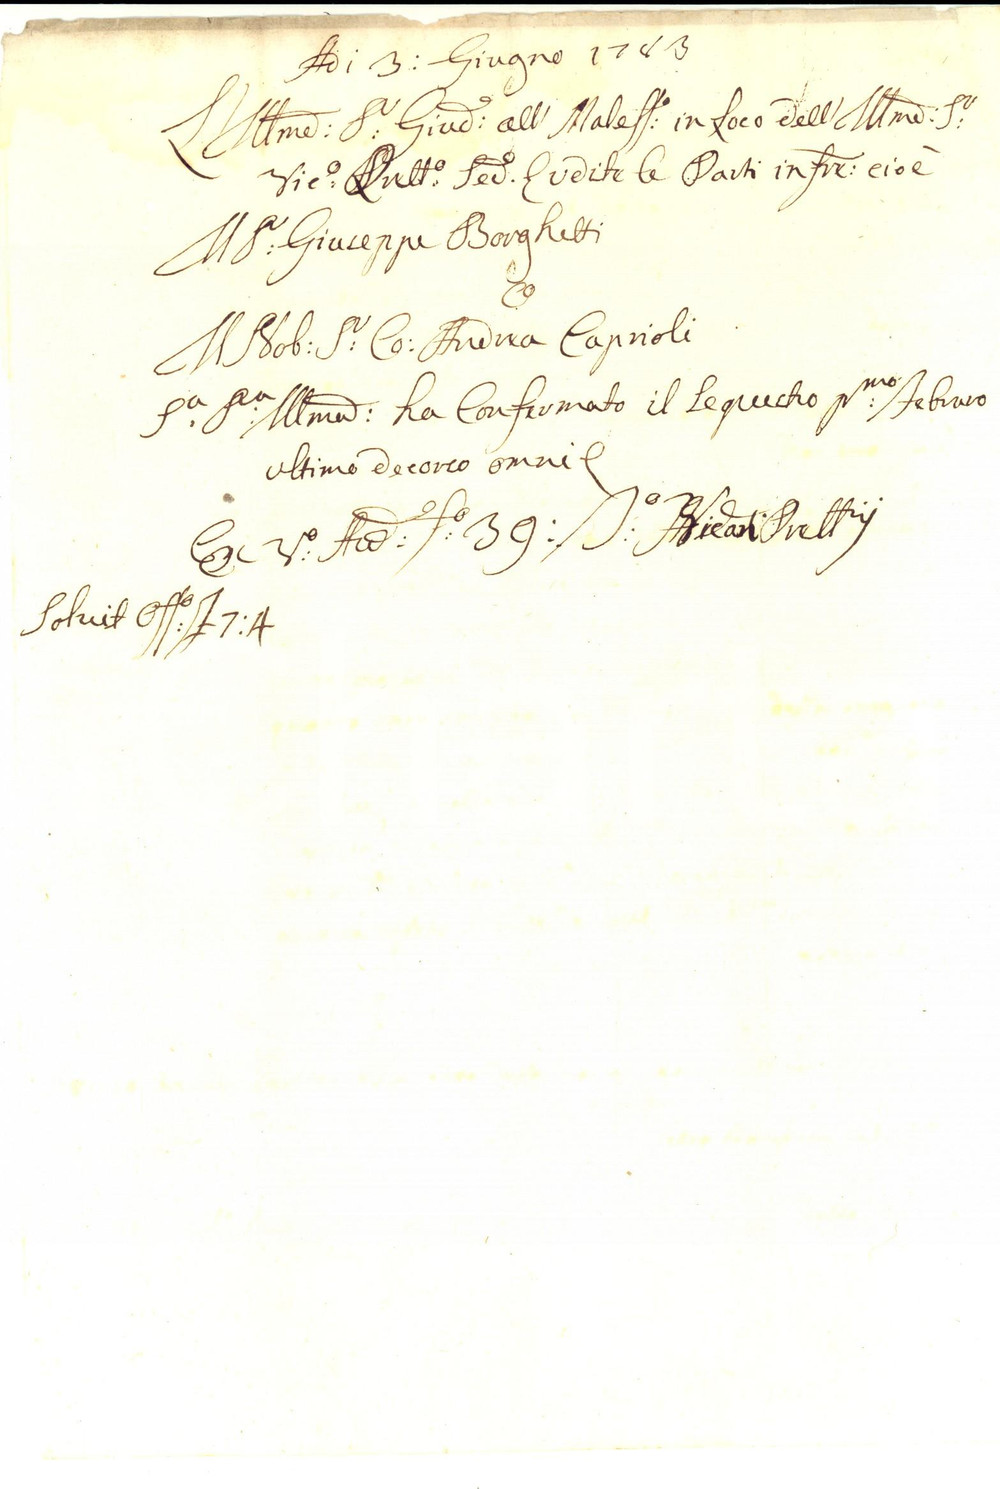 Adi 3: Giugno 1783
L'Illmo: Sr: Giud: all Malefo: in loco dell' Illmo: Sr:
Vico: Prett:o Sed. Udite le Parti infre: cioè
Il Sr: Giuseppe Borghetti
Co
Il Nob: Sr: Co: Andrea Caprioli
Sa. Sria Illma: ha Confermato il sequestro pmo: Febraro
ultimo decorso omni
Ex Vo: Aed: fo: 39: Vicar Prettij
Solvit Offo: £ 7:4